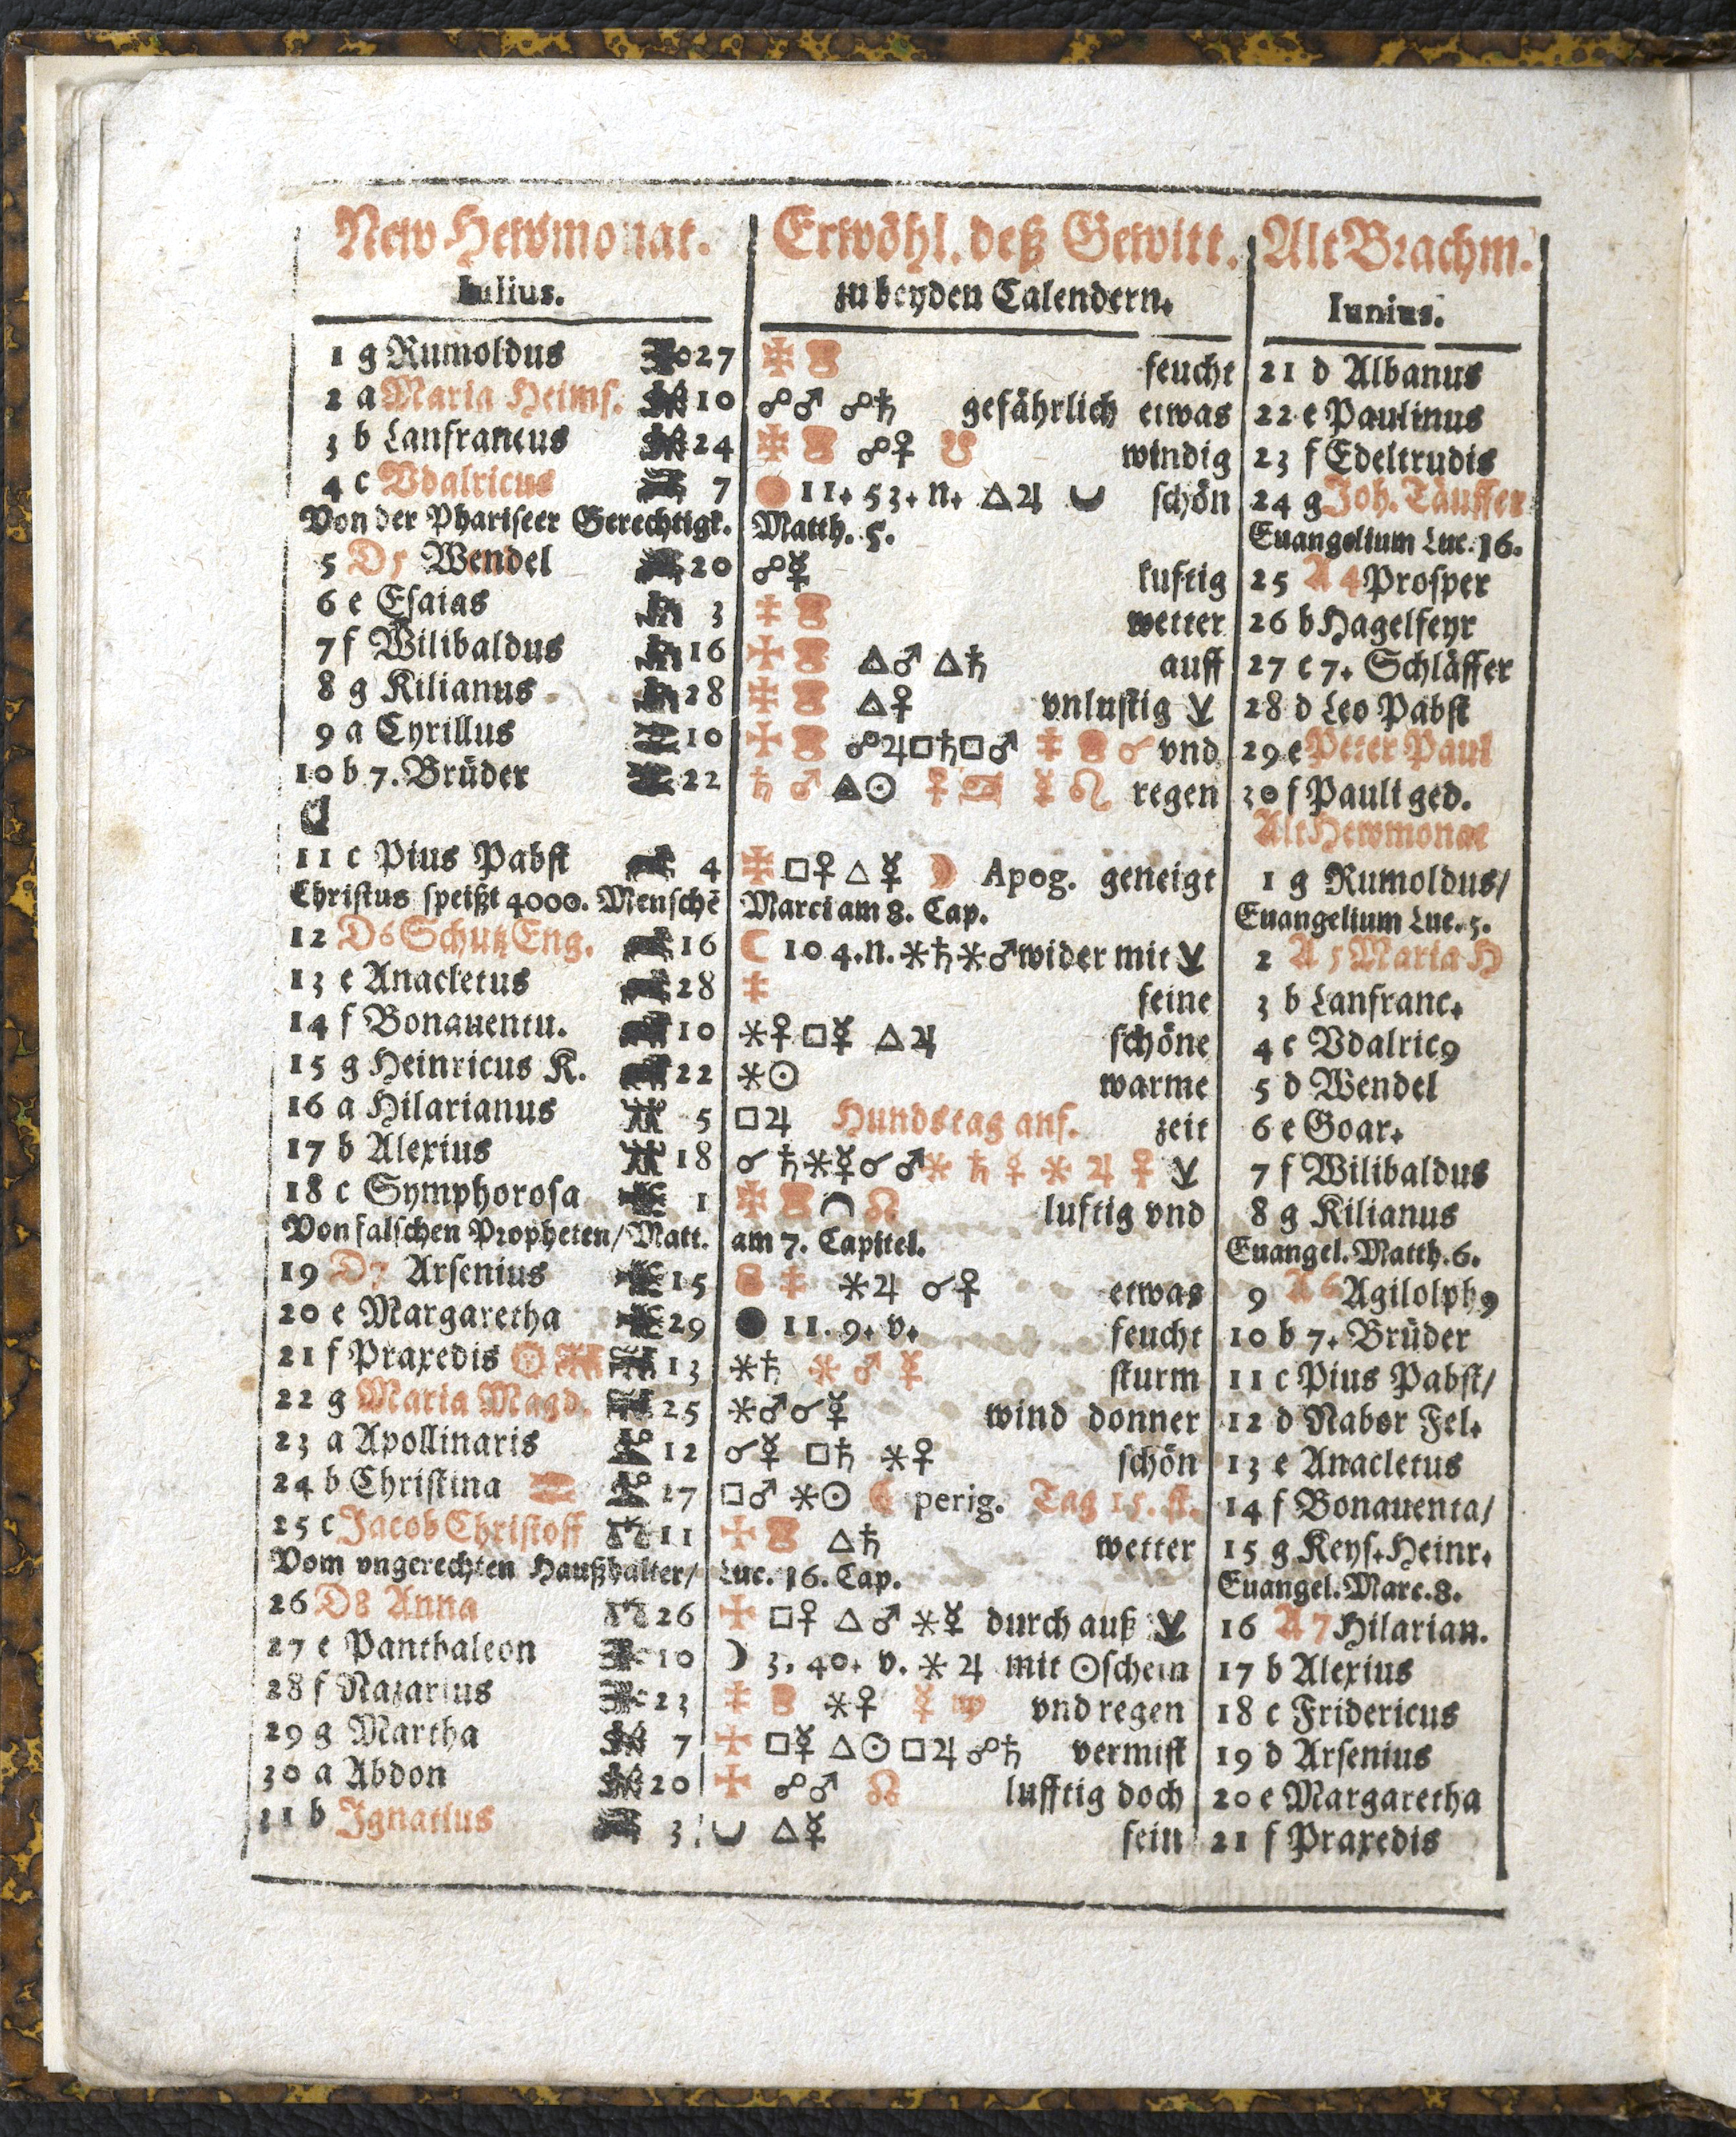 New Hewmonat. Erwöhl. deß Gewitt. Alt Brachm.
Iulius. zu beyden Calendern. Iunius.
1 g Rumoldus 27 feucht 21 d Albanus
2 a Maria Heims. 10 ☍♂ ☍♄ gefährlich etwas 22 e Paulinus
3 b Lanfrancus 24 ☍♀ ☋ windig 23 f Edeltrudis
4 c Vdalricus 7 11. 53. n. △♃ schön 24 g Joh. Täuffer
Von der Phariseer Gerechtigk. Matth. 5. Euangelium Luc. 16.
5 D5 Wendel 20 ☍☿ luftig 25 A 4 Prosper
6 e Esaias 3 wetter 26 b Hagelfeyr
7 f Wilibaldus 16 △♂ △♄ auff 27 c 7. Schläffer
8 g Kilianus 28 △♀ vnlustig 28 d Leo Pabst
9 a Cyrillus 10 ☍♃□♄□♂ ☌ vnd 29 e Peter Paul
10 b 7. Brüder 22 ♄ ♂ △☉ ♀ ☿ ♌ regen 30 f Pauli ged.
d Alt Hewmonat
11 c Pius Pabst 4 □♀ △☿ ☽ Apog. geneigt 1 g Rumoldus/
Christus speißt 4000. Menschē Marci am 8. Cap. Euangelium Luc. 5.
12 D6 Schutz Eng. 16 ☾ 10 4. n. ⚹♄⚹♂ wider mit 2 A 5 Maria H
13 e Anacletus 28 feine 3 b Lanfranc.
14 f Bonauentu. 10 ⚹♀□☿ △♃ schöne 4 c Vdalric9
15 g Heinricus K. 22 ⚹☉ warme 5 d Wendel
16 a Hilarianus 5 □♃ Hundstag anf. zeit 6 e Goar.
17 b Alexius 18 ☌♄⚹☿☌♂⚹ ♄ ☿ ⚹ ♃ ♀ 7 f Wilibaldus
18 c Symphorosa 1 ☊ luftig vnd 8 g Kilianus
Von falschen Propheten/ Matt. am 7. Capitel. Euangel. Matth. 6.
19 D7 Arsenius 15 ⚹♃ ☌♀ etwas 9 A 6 Agilolph9
20 e Margaretha 29 ● 11. 9. v. feucht 10 b 7. Brüder
21 f Praxedis 13 ⚹♄ ⚹ ♂ ☿ sturm 11 c Pius Pabst/
22 g Maria Magd. 25 ⚹♂☌☿ wind donner 12 d Nabor Fel.
23 a Apollinaris 12 ☌☿ □♄ ⚹♀ schön 13 e Anacletus
24 b Christina 27 □♂ ⚹☉ ☾ perig. Tag 15. st. 14 f Bonauenta/
25 c Jacob Christoff 11 △♄ wetter 15 g Keys. Heinr.
Vom vngerechten Haußhalter/ Luc. 16. Cap. Euangel. Marc. 8.
26 D8 Anna 26 □♀ △♂ ⚹☿ durch auß 16 A 7 Hilarian.
27 e Panthaleon 10 ☽ 3. 40. v. ⚹♃ mit ☉schein 17 b Alexius
28 f Nazarius 23 ⚹♀ ☿ ♍ vnd regen 18 c Fridericus
29 g Martha 7 □☿ △☉ □♃ ☍♄ vermist 19 d Arsenius
30 a Abdon 20 ☍♂ ☊ lufftig doch 20 e Margaretha
31 b Ignatius 3 △☿ fein 21 f Praxedis